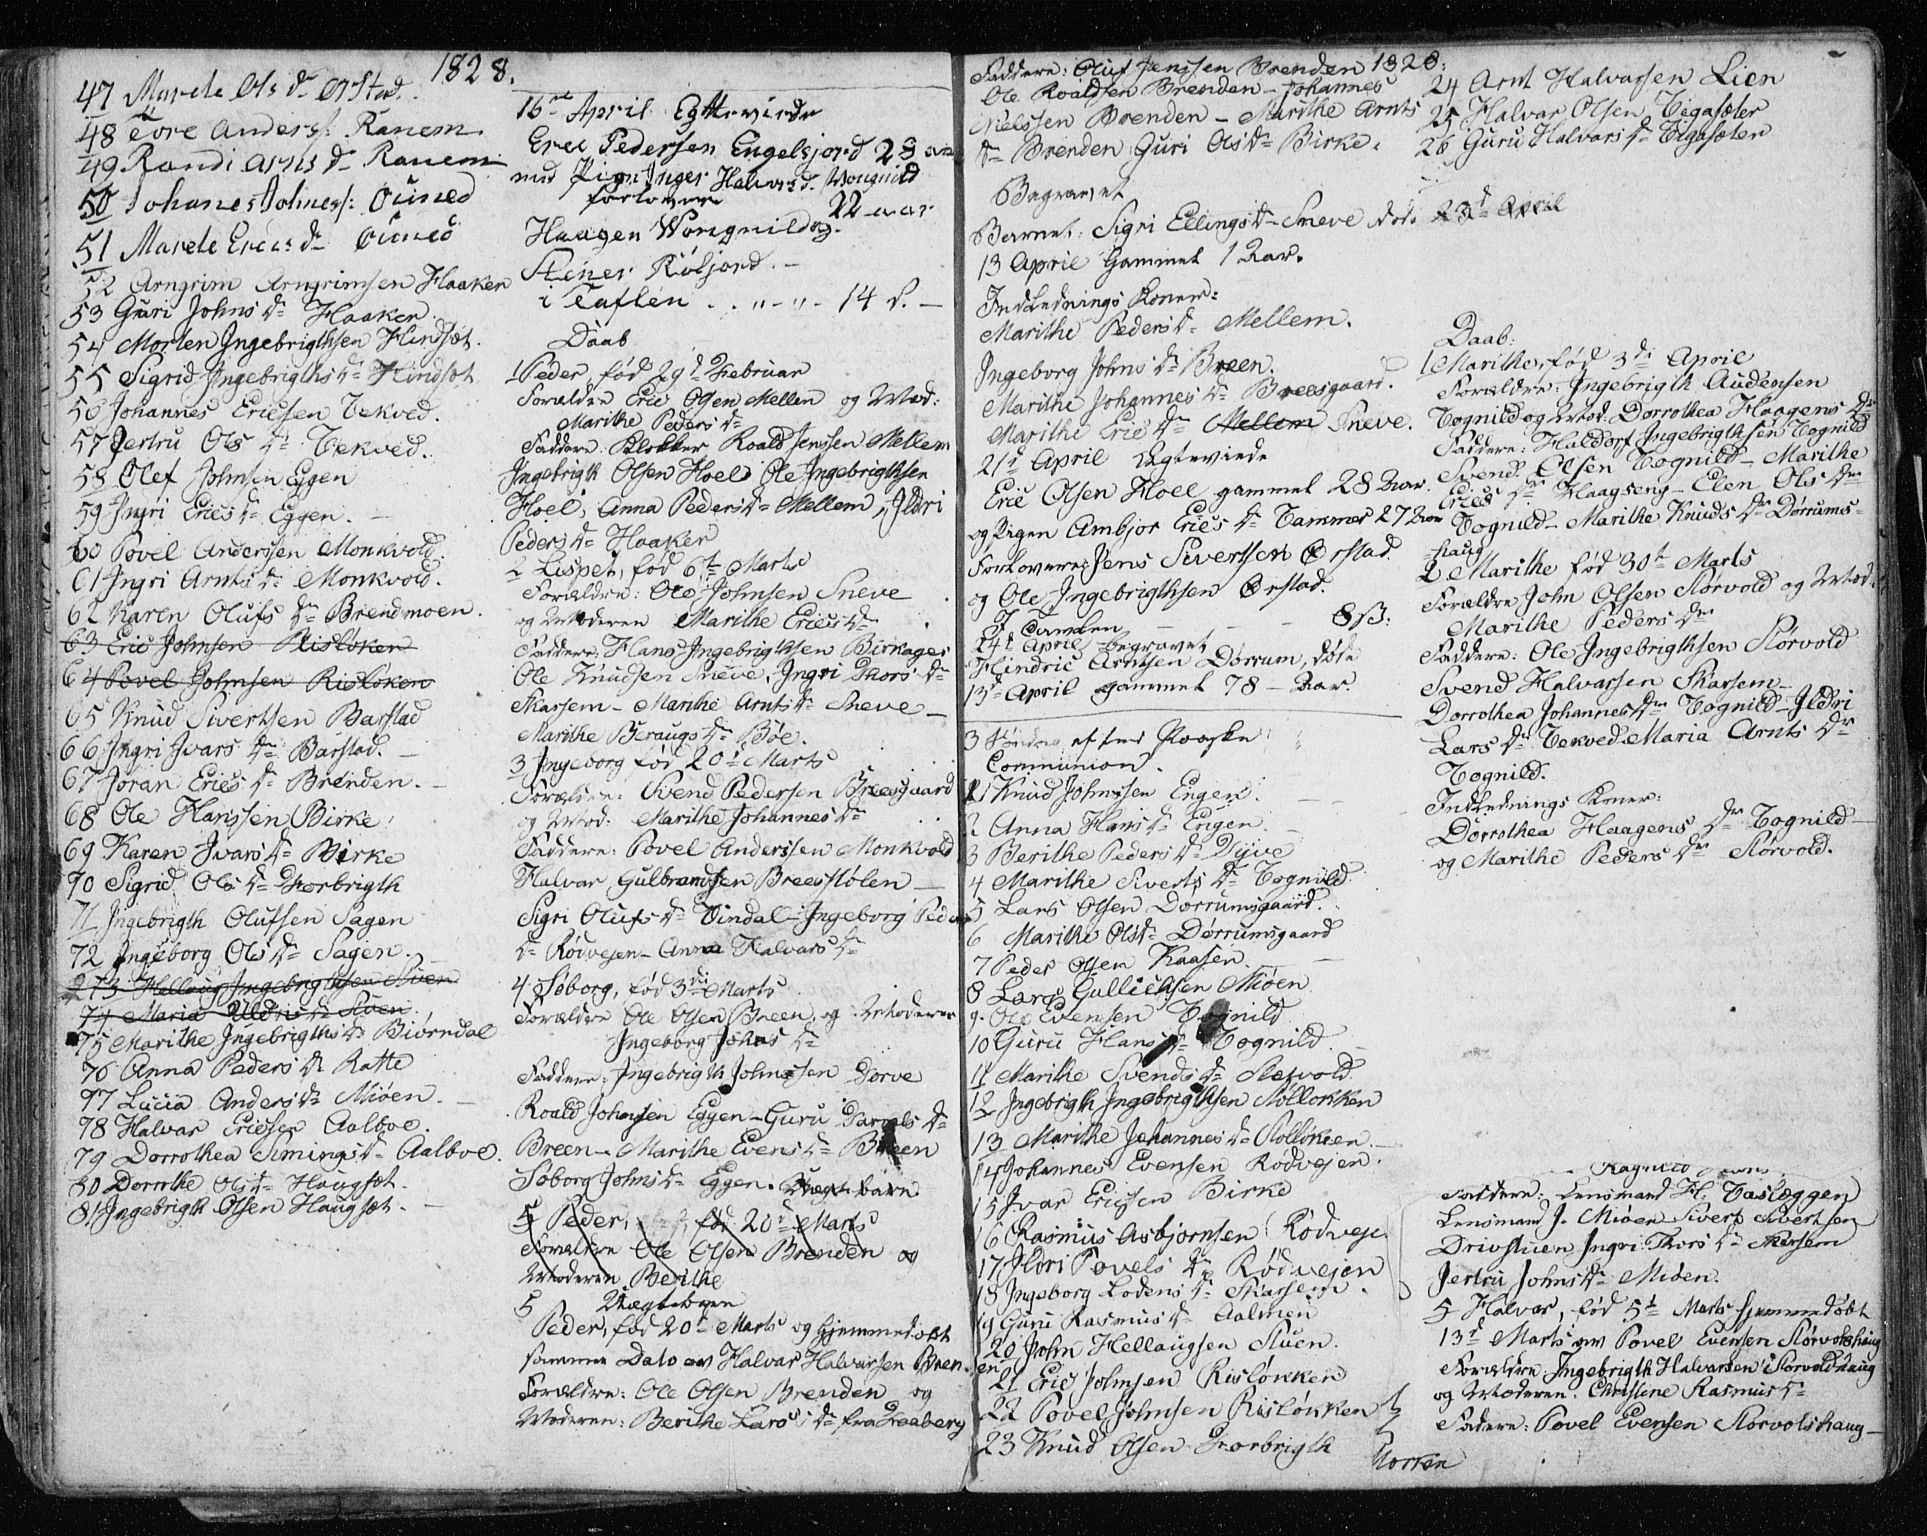 1828.
47 Marete Ols Dr Ørstad.
48 Tore Anders: Ranem
49 Randi Arns Dr Ranem
50 Johanes Johnes: Ouned
51 Marete Erics Dr Ouned
52 Arngrim Arngrimsen Haaker
53 Guri Johns Dr Haaker.
54 Morten Ingebrigthsen Hindsæt.
55 Sigrid Ingebrigths Dr Hindsæt
56 Johannes Ericsen Tekved.
57 Jertru Ols Dr Tekved.
58 Olef Johnsen Eggen
59 Ingri Erics Dr Eggen.
60 Povel Anderssen Monkvold.
61 Ingri Arnts Dr Monkvold.
62 Karen Olufs Dr Brendmoen.
63 Eric Johnsen Risløken
64 Povel Johnsen Risløken
65 Knud Sivertsen Barstad
66 Ingri Ivars Dr Barstad.
67 Joran Erics Dr Brenden.
68 Ole Hanssen Birke
69 Karen Ivars Dr Birke
70 Sigrid Ols Dr Forbrigth
71 Ingebrigth Olufsen Sagen
72 Ingeborg Ols Dr Sagen.
73 Hellaug Ingebrigthsen Stuen
74 Maria Dr Stuen.
75 Marithe Ingebrigths Dr Biørndal
76 Anna Peders Dr Ratte
77 Lucia Anders Dr Miøen.
78 Halvar Ericsen Aalboe.
79 Dorrothea Simings Dr Aalboe.
80 Dorrthe Ols Dr Haugsæt.
81 Ingebrigth Olsen Haugsæt.
16de April Egteviede
Eric Pedersen Engelsjord 28 aar
med Pigen Inger Halvars Dr Vongnild
forlovere 22 aar
Haagen Wongnild og
Stener Røljord.
i Taflen . . „ - „ - 14 s.
Daab
1 Peder, fød 29d Februar
Forældre Eric Olsen Mellem og Mod:
Marithe Peders Dr
Faddere: Klokker Roald Jenssen Mellem
Ingebrigth Olsen Hoel Ole Ingebrigthsen
Hoel, Anna Peders Dr Mellem, Ildri
Peders Dr Haaker
2 Lispet, fød 6te Marts
Forældre: Ole Johnsen Sneve
og Moderen Marithe Erics Dr
Faddere: Hans Ingebrigthsen Birkager
Ole Knudsen Sneve. Ingri Thors Dr
Skarsem - Marithe Arnts Dr Sneve
Marithe Beraugs Dr Bøe.
3 Ingeborg fød 20d Marts
Forældre: Svend Pedersen Breesgaard
og Mod: Marithe Johannes Dr
Faddere: Povel Anderssen Monkvold
Halvar Gulbrandsen Breestølen
Sigri Olufs Dr Vindal - Ingeborg Peders
Dr Rødvejen - Anna Halvars Dr
4 Søborg, fød 3di Marts
Forældre Ole Olsen Breen, og Moderen
Ingeborg Johns Dr
Faddere: Ingebrigth Johnssen Dorve
Roald Johnsen Eggen - Guru Dr
Breen - Marithe Evens Dr Breen
Søborg Johns Dr Eggen. Uægte barn
5 Peder, fød 20d Marts
Forældre Ole Olsen Brenden og
Moderen Berithe
5 Uægte børn
Peder, fød 20d Marts og hjemmedøbt
samme Dato av Halvar Halvarsen Breen.
Forældre: Ole Olsen Brenden og
Moderen: Berithe Lars's Dr fra Traaberg
1828.
Faddere: Oluf Jenssen Brenden
Ole Roaldsen Brenden - Johannes
Nielssen Brenden - Marithe Arnts
Dr Brenden Guri Ols Dr Birke.
Begravet
Barnet: Sigri Ellings Dr Sneve døde 23d April
13 April Gammel 1 Aar.
Indlednings Koner:
Marithe Peders Dr Mellem.
Ingeborg Johns Dr Breen.
Marithe Johannes Dr Breesgaard.
Marithe Erics Dr Mellem Sneve.
21d April Ægteviede
Eric Olsen Hoel gammel 28 Aar
og Pigen Ambjor Erics Dr Tammes 27 Aar
Forlovere Jens Sivertsen Ørstad
og Ole Ingebrigthsen Ørstad.
I Tavlen - - - 8 ß:
24d April begravet
Hindric Arntsen Dørrum, døde
13d April gammel 78 - Aar.
3 Søndag efter Paaske
Communion.
1 Knud Johnssen Engen.
2 Anna Hans Dr Engen.
3 Berithe Peders Dr Dyve
4 Marithe Siverts Dr Tognild
5 Lars Olsen Dørrumsgaard.
6 Marithe Ols Dr Dørrumsgaard
7 Peder Olsen Kaasen.
8 Lars Gullichsen Miøen
9. Ole Evensen Tognild
10 Guru Hans Dr Tognild.
11 Marithe Svends Dr Størvold
12 Ingebrigth Ingebrigthsen Støllokken
13 Marithe Johannes Dr Støllokken
14 Johannes Evensen Rødvejen.
15 Ivar Ericsen Birke
16 Rasmus Asbjørnsen Rødveje
17 Ildri Povels Dr Rødvejen
18 Ingeborg Lodens Dr Skarsem.
19 Guru Rasmus Dr Aalmen
20 John Hellaugsen Stuen.
21 Eric Johnsen Risløkken
22 Povel Johnsen Risløkken
23 Knud Olsen Forbrigth
24 Arnt Halvarsen Lien
25 Halvar Olsen Vegasæter
26 Guru Halvars Dr Vegasæter
Daab:
1 Marithe, fød 3di April
Forældre: Ingebrigth Audensen
Tognild og Mod. Dorrothea Haagens Dr
Faddere: Haldorf Ingebrigthsen Tognild
Svend Olsen Tognild - Marithe
Erics Dr Haagseng - Elen Ols Dr
Tognild - Marithe Knuds Dr Dørrums-
haug
2 Marithe fød 30t Marts
Forældre John Olsen Størvold og Mod.
Marithe Peders Dr
Faddere: Ole Ingebrigthsen Størvold
Svend Halvarsen Skarsem -
Dorrothea Johannes Dr Tognild - Ildri
Lars Dr Tekved Maria Arnts Dr
Tognild.
Indlednings Koner:
Dorrothea Haagens Dr Tognild
og Marithe Peders Dr Størvold.
Ragnild
Faddere: Lensmand H. Vasleggen
Lensmand J. Miøen Sivert Sivertsen
Drivstuen Ingri Thors Dr Skarsem
Jertru Johns Dr Miøen.
5 Halvar, fød 5t Marts hjemmedøbt
13d Marts av Povel Evensen Størvolshaug
Forældre Ingebrigth Halvarsen Størvoldshaug
og Moderen. Christine Rasmus Dr
Fadere: Povel Evensen Størvolshaug